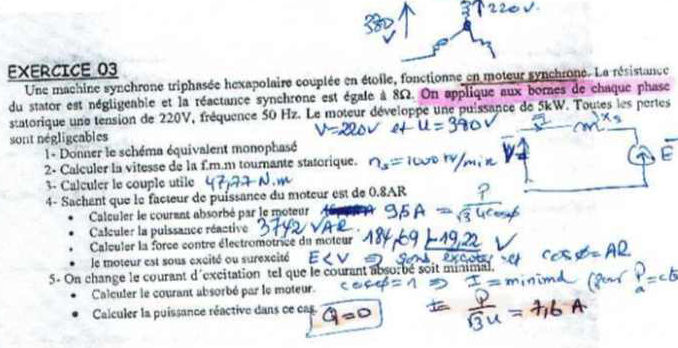 380 V 3 220V.
EXERCICE 03
Une machine synchrone triphasée hexapolaire couplée en étoile, fonctionne en moteur synchrone. La résistance
du stator est négligeable et la réactance synchrone est égale à 8Ω. On applique aux bornes de chaque phase
statorique une tension de 220V, fréquence 50 Hz. Le moteur développe une puissance de 5kW. Toutes les pertes
sont négligeables V=220V et U=380V
1- Donner le schéma équivalent monophasé
2- Calculer la vitesse de la f.m.m tournante statorique. ns=1000 tr/min V E
3- Calculer le couple utile 47,77 N.m
4- Sachant que le facteur de puissance du moteur est de 0.8AR
• Calculer le courant absorbé par le moteur 9,5A = P/√3 U cosφ
• Calculer la puissance réactive 3742 VAR.
• Calculer la force contre électromotrice du moteur 184,69 |-19,22 V
• le moteur est sous excité ou surexcité E<V ⇒ sous excité et cosφ=AR
5- On change le courant d'excitation tel que le courant absorbé soit minimal.
• Calculer le courant absorbé par le moteur. cosφ=1 ⇒ I=minimal
• Calculer la puissance réactive dans ce cas Q=0 I= P/√3U = 7,6 A